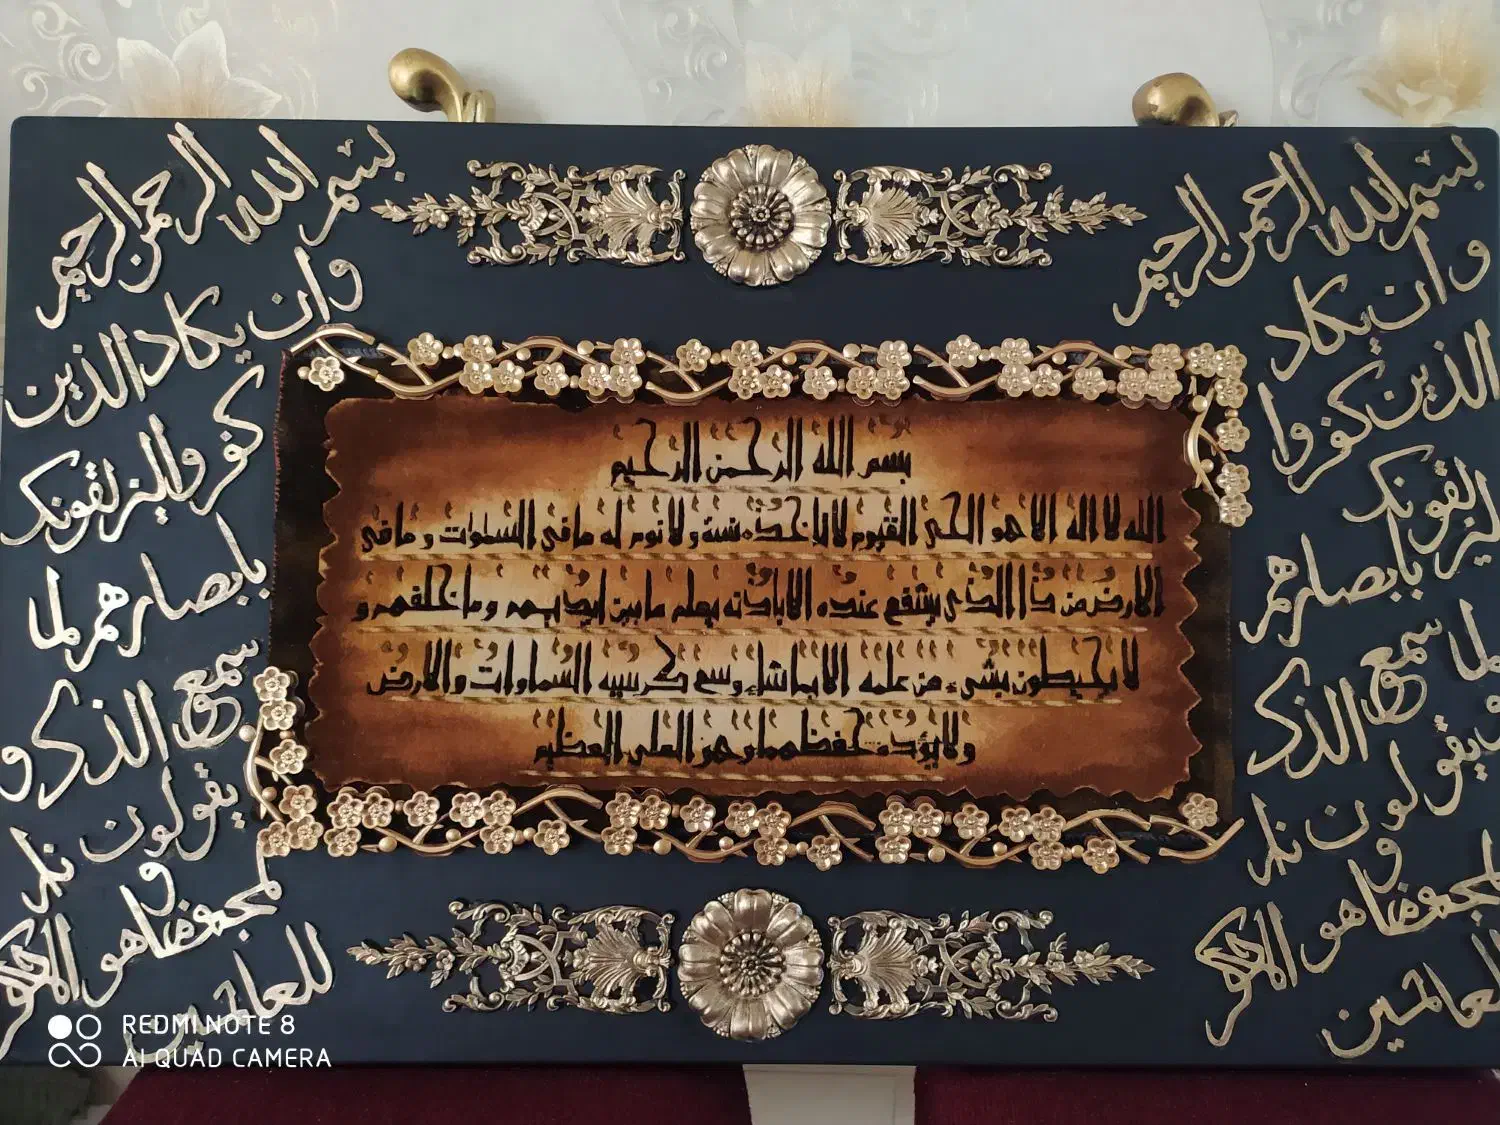 بسم الله الرحمن الرحيم
وان يكاد
الذين كفروا
ليزلقونك
بابصارهم
لما سمع
الذكر و
يقولون
و
هو
للعالمين
بسم الله الرحمن الرحيم
الله لا اله الا هو الحى القيوم لا تاخذه سنة و لا نوم له ما فى السموات و ما فى
الارض من ذا الذى يشفع عنده الا باذنه يعلم ما بين ايديهم و ما خلفهم و
لا يحيطون بشىء من علمه الا بما شاء وسع كرسيه السماوات و الارض
و لا يؤده حفظهما و هو العلى العظيم
بسم الله الرحمن الرحيم
وان يكاد الذين
كفروا ليزلقونك
بابصارهم لما
سمع الذكر و
يقولون
و
ما هو
للعالمين
REDMI NOTE 8
AI QUAD CAMERA